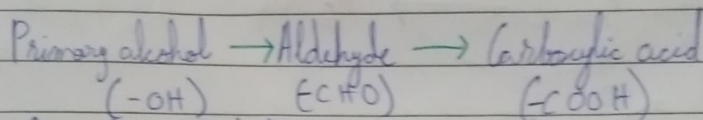 Primary alcohol → Aldehyde → Carboxylic acid
(-OH) (-CHO) (-COOH)